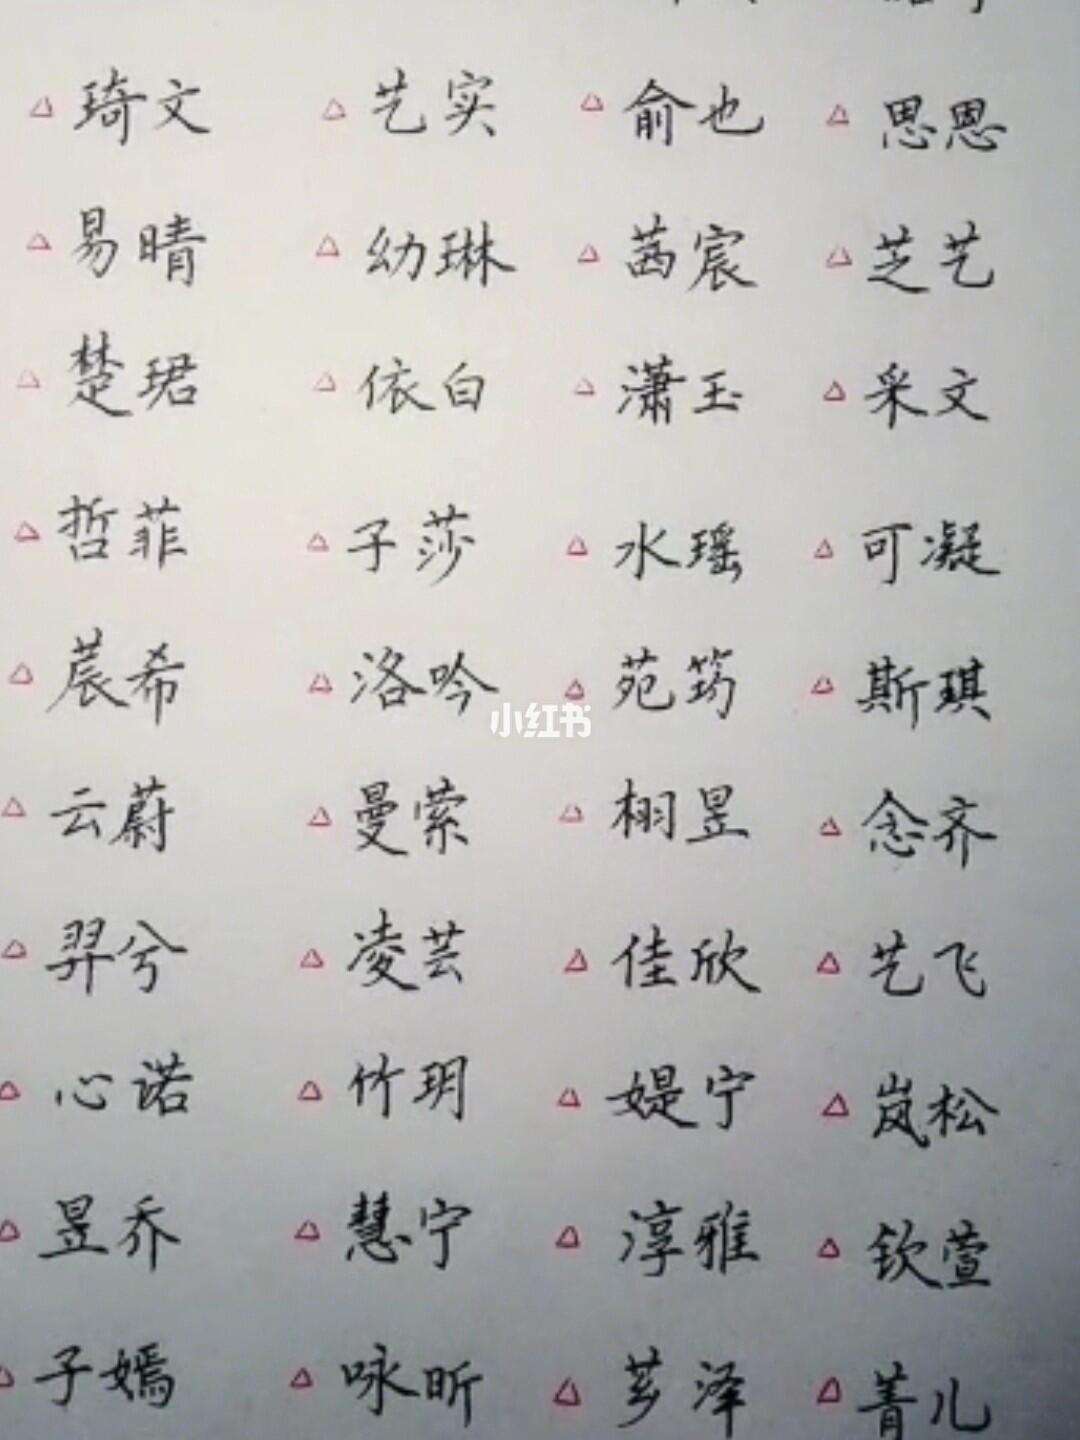 △琦文 △艺实 △俞也 △思恩
△易晴 △幼琳 △茜宸 △芝艺
△楚珺 △依白 △潇玉 △采文
△哲菲 △子莎 △水瑶 △可凝
△莀希 △洛吟 △苑筠 △斯琪
小红书
△云蔚 △曼萦 △栩昱 △念齐
△羿兮 △凌芸 △佳欣 △艺飞
△心诺 △竹玥 △媞宁 △岚松
△昱乔 △慧宁 △淳雅 △钦萱
△子嫣 △咏昕 △芗泽 △菁儿